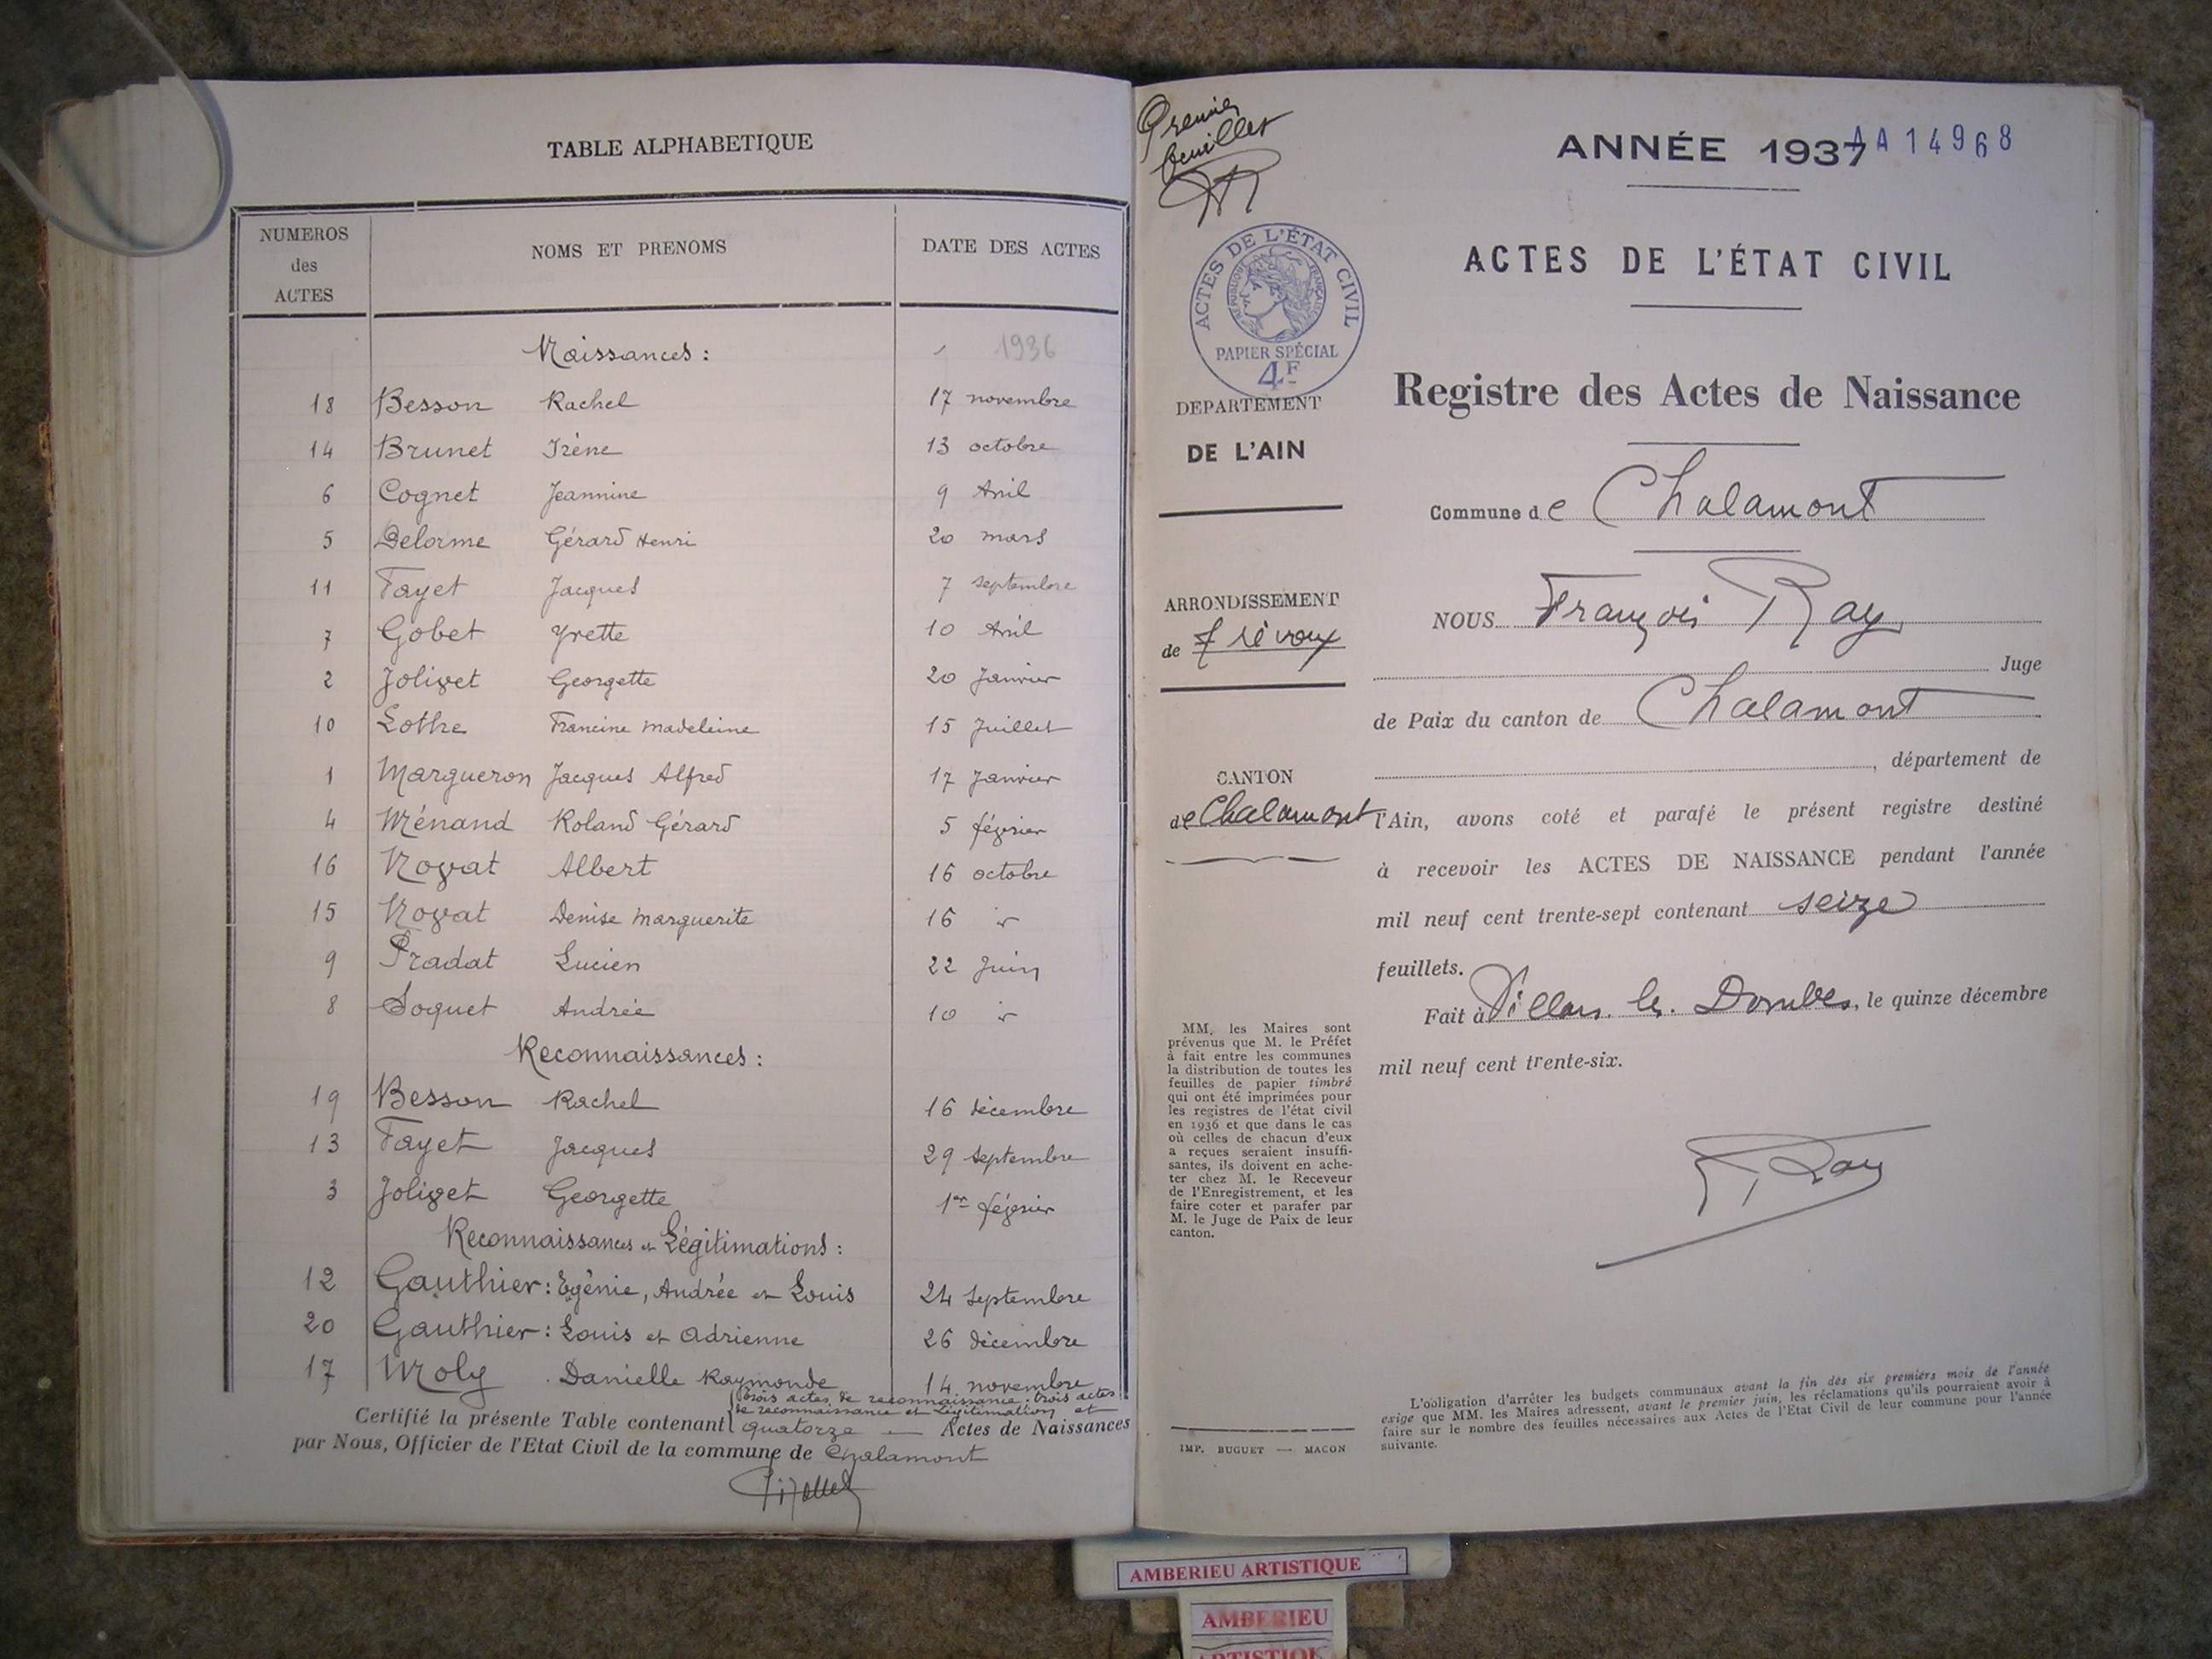 TABLE ALPHABETIQUE
NUMEROS des ACTES
NOMS ET PRENOMS
DATE DES ACTES
Naissances : 1936
18 Besson Rachel 17 novembre
14 Brunet Irène 13 octobre
6 Cognet Jeannine 9 Avril
5 Delorme Gérard Henri 20 mars
11 Fayet Jacques 7 septembre
7 Gobet Yvette 10 Avril
2 Jolivet Georgette 20 Janvier
10 Lothe Francine Madeleine 15 Juillet
1 Margueron Jacques Alfred 17 Janvier
4 Ménand Roland Gérard 5 février
16 Novat Albert 16 octobre
15 Novat Denise Marguerite 16 "
9 Pradat Lucien 22 Juin
8 Soquet Andrée 10 "
Reconnaissances :
19 Besson Rachel 16 décembre
13 Fayet Jacques 29 septembre
3 Jolivet Georgette 1er février
Reconnaissances et Légitimations :
12 Gauthier : Egénie, Andrée et Louis 24 septembre
20 Gauthier : Louis et Adrienne 26 décembre
17 Moly Danielle Raymonde 14 novembre
trois actes de reconnaissance. trois actes
de reconnaissance et Légitimation et
Certifié la présente Table contenant quatorze — Actes de Naissances
par Nous, Officier de l'Etat Civil de la commune de Chalamont
Premier
feuillet
ANNÉE 1937
AA14968
ACTES DE L'ÉTAT CIVIL
ACTES DE L'ÉTAT CIVIL
RÉPUBLIQUE FRANÇAISE
PAPIER SPÉCIAL
4F
DEPARTEMENT
DE L'AIN
Registre des Actes de Naissance
Commune de Chalamont
ARRONDISSEMENT
de Trévoux
NOUS François Ray
Juge
de Paix du canton de Chalamont
, département de
CANTON
de Chalamont
l'Ain, avons coté et parafé le présent registre destiné
à recevoir les ACTES DE NAISSANCE pendant l'année
mil neuf cent trente-sept contenant seize
feuillets.
Fait à Villars les Dombes, le quinze décembre
mil neuf cent trente-six.
F Ray
MM. les Maires sont
prévenus que M. le Préfet
à fait entre les communes
la distribution de toutes les
feuilles de papier timbré
qui ont été imprimées pour
les registres de l'état civil
en 1936 et que dans le cas
où celles de chacun d'eux
a reçues seraient insuffi-
santes, ils doivent en ache-
ter chez M. le Receveur
de l'Enregistrement, et les
faire coter et parafer par
M. le Juge de Paix de leur
canton.
IMP. BUGUET — MACON
L'obligation d'arrêter les budgets communaux avant la fin des six premiers mois de l'année
exige que MM. les Maires adressent, avant le premier juin, les réclamations qu'ils pourraient avoir à
faire sur le nombre des feuilles nécessaires aux Actes de l'Etat Civil de leur commune pour l'année
suivante.
AMBERIEU ARTISTIQUE
AMBERIEU
ARTISTIQUE